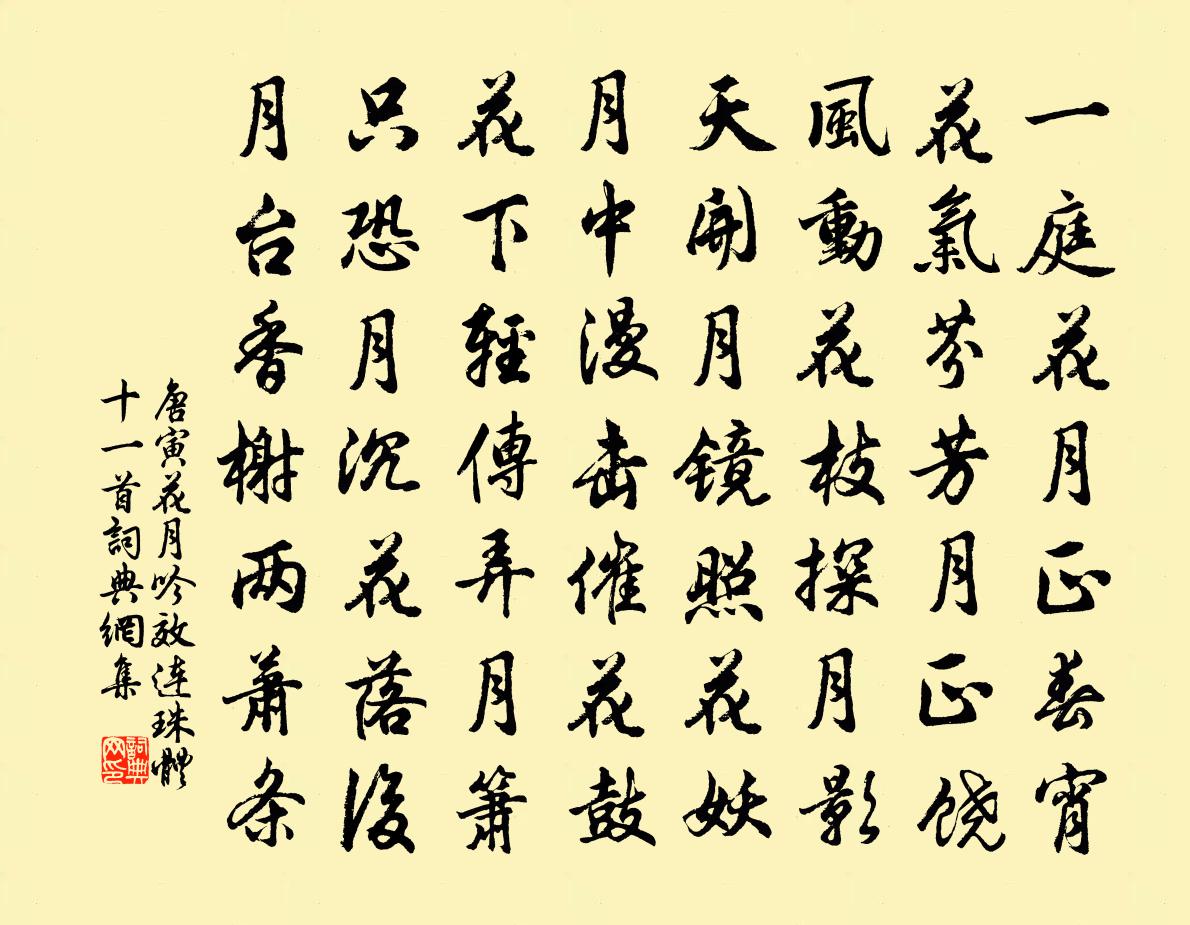 一庭花月正春宵
花氣芬芳月正饶
風動花枝探月影
天開月镜照花妖
月中漫击催花鼓
花下輕傳弄月箫
只恐月沉花落後
月台香榭两萧条
唐寅花月吟效连珠體
十一首詞典網集
詞典
网印